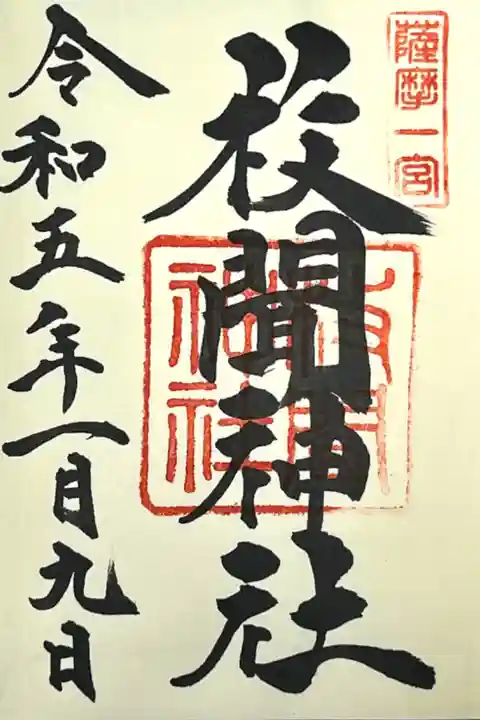 薩摩一宮
枚聞神社
枚聞神社
令和五年一月九日